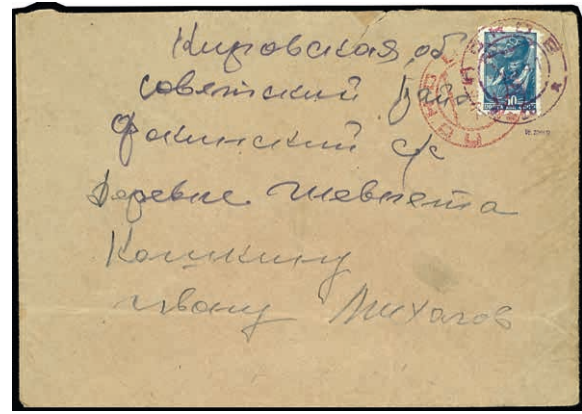 Кировская об
советский Район
Фокинский с/с
деревне Шевнета
Кошкину
ивану Михагов
10